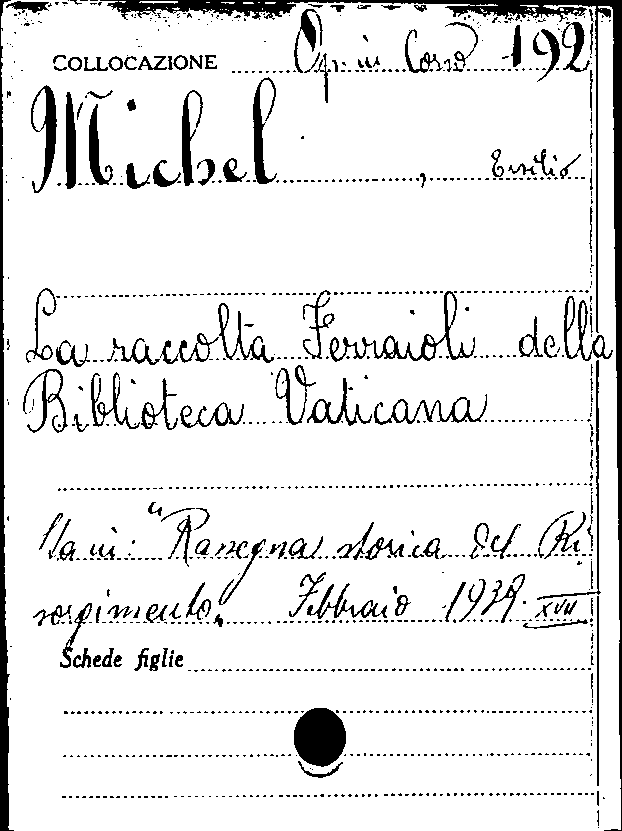 COLLOCAZIONE Op. in Corso 192
Michel, Ersilio
La raccolta Ferraioli della
Biblioteca Vaticana
Sta in: "Rassegna storica del Ri
sorgimento„ Febbraio 1939. XVII
Schede figlie